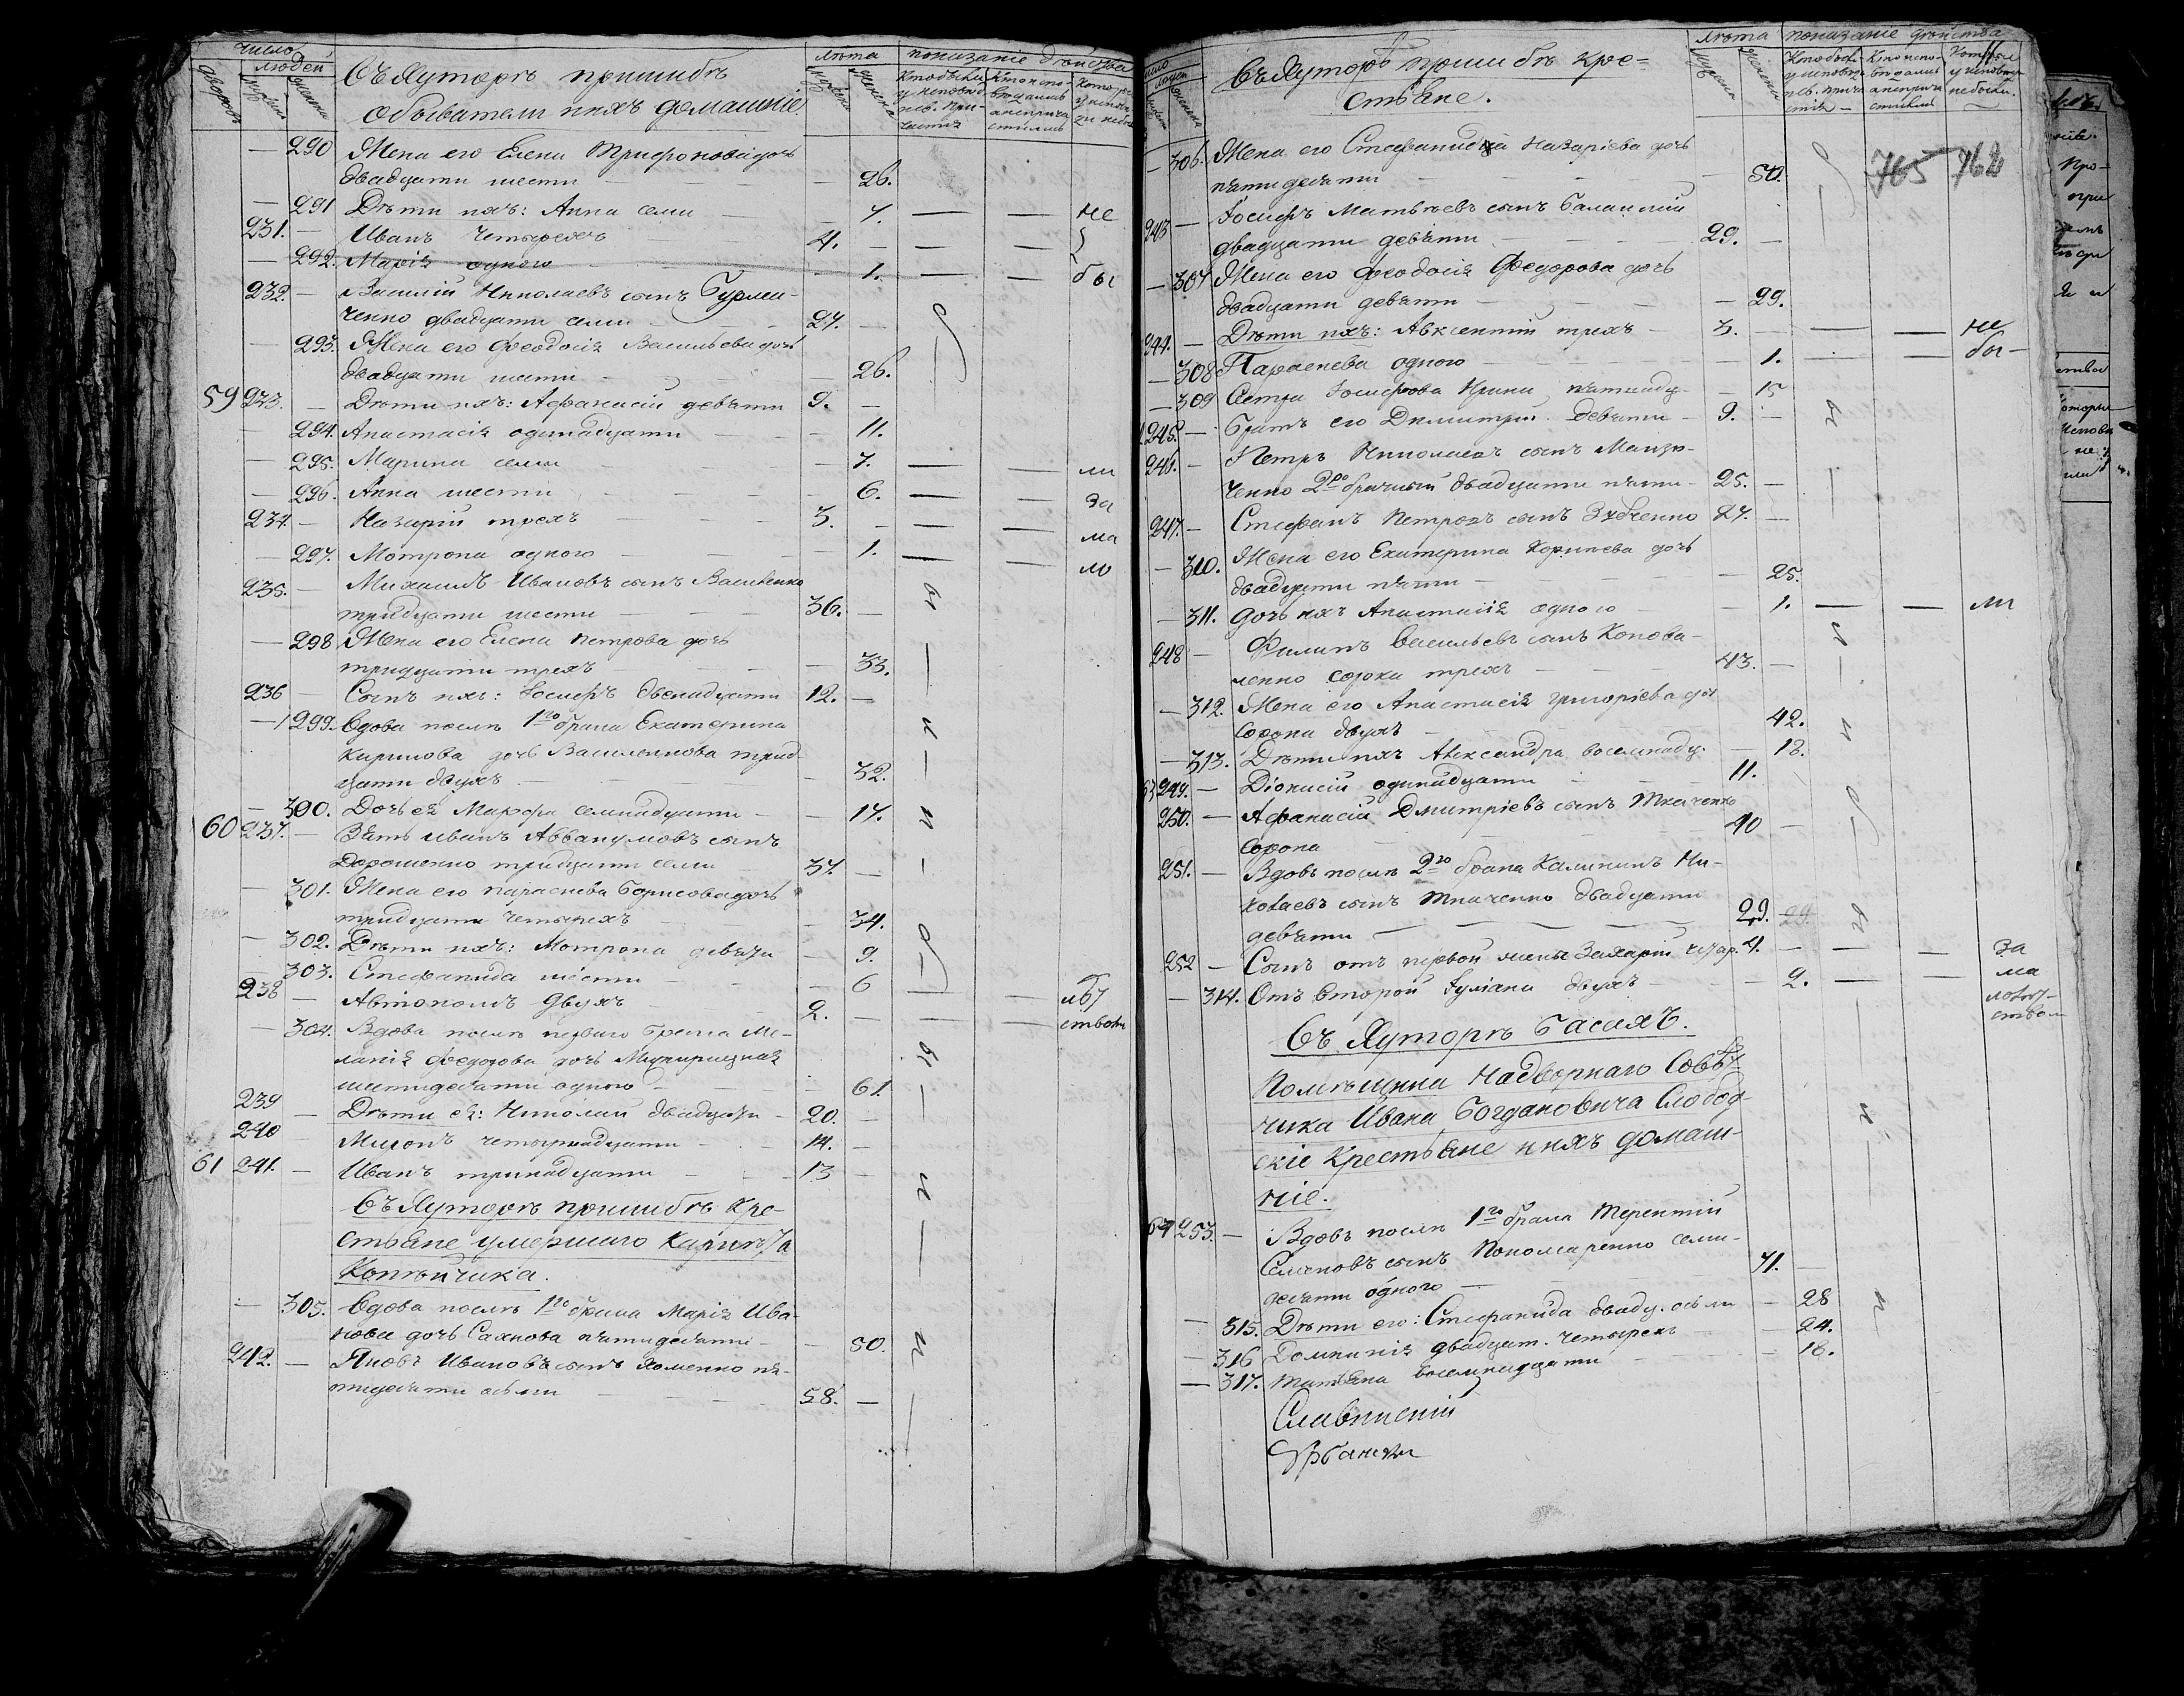 число
людей
лѣта
показаніе дѣйства
дворовъ
мужеска
женска
Въ Хуторѣ пришибѣ
обыватели и ихъ домашніе
мужеска
женска
290 Жена его Елена Трифонова дочь
двадцати шести 26.
291 Дѣти ихъ: Анна семи 7. — — не
231. Иванъ четырехъ 4. — —
292. Марія одного 1. — — бы
232. Василій Николаевъ сынъ Гурми-
ченко двадцати семи 27.
293. Жена его Феодосія Васильева дочь
двадцати шести 26.
59 233. Дѣти ихъ: Афанасій девяти 9.
294. Анастасія одинадцати 11.
295. Марина семи 7. — — ли
296. Анна шести 6. — — за
234 Назарій трехъ 3. — — ма
297. Мотрона одного 1. — — ло
235. Михаилъ Ивановъ сынъ Василенко
тридцати шести 36.
298 Жена его Елена Петрова дочь
тридцати трехъ 33.
236 Сынъ ихъ: Іосифъ двенадцати 12.
299. Вдова послѣ 1го брака Екатерина
Кирилова дочь Василенкова трид-
цати двухъ 32.
300. Дочь ея Марфа семнадцати 17.
60 237. Зять Иванъ Аввакумовъ сынъ
Дорошенко тридцати семи 37.
301. Жена его Параскева Борисова дочь
тридцати четырехъ 34.
302. Дѣти ихъ: Мотрона девяти 9.
303. Стефанида шести 6
238 Автономъ двухъ 2.
304. Вдова послѣ перваго брака Ме-
ланія Федорова дочь
шестидесяти одного 61.
239 Дѣти ея: Николай двадцати 20.
240 Миронъ четырнадцати 14.
61 241. Иванъ тринадцати 13
Въ Хуторѣ пришибѣ Кре-
стьяне умершаго
Копѣйчика.
305. Вдова послѣ 1го брака Марія Ива-
нова дочь Сахнова пятидесяти 50.
242. Яковъ Ивановъ сынъ Хоменко пя-
тидесяти осьми 58.
лѣта
показаніе дѣйства
Въ Хуторѣ пришибѣ кре-
стьяне.
306. Жена его Стефанида Назаріева дочь
пятидесяти 50.
765 762
243 Іосифъ Матвѣевъ сынъ
двадцати девяти 29.
307 Жена его Феодосія Федорова дочь
двадцати девяти 29.
244. Дѣти ихъ: Авксентій трехъ 3. — — не
308 Параскева одного 1. — — бы
309 Сестра Іосифова Ирина пятнадц. 15
245. Братъ его Димитрій девяти 9.
246. Петръ Николаевъ сынъ
ченко 2го брачный двадцати пяти 25.
247. Стефанъ Петровъ сынъ Зубченко 27.
310. Жена его Екатерина Корнѣева дочь
двадцати пяти 25.
311. Дочь ихъ Анастасія одного 1. — — ли
248 Филипъ Васильевъ сынъ Конова-
ленко сорока трехъ 43.
312. Жена его Анастасія Григоріева до
сорока двухъ 42.
313. Дѣти ихъ Александра восемнадц. 18.
63 249. Діонисій одинадцати 11.
250. Афанасій Дмитріевъ сынъ Ткаченко
сорока 40
251. Вдовъ послѣ 2го брака Калиникъ Ни-
колаевъ сынъ Ткаченко двадцати
девяти 29.
252 Сынъ отъ первой жены Захарій четыр. 4. — — за
314. Отъ второй Іуліана двухъ 2. — — ма
Въ Хуторѣ Басахъ.
Помѣщика Надворнаго Совѣт-
ника Ивана Богдановича Слобод-
скіе Крестьяне и ихъ домаш-
ніе.
64 253. Вдовъ послѣ 1го брака Терентій
Семеновъ сынъ Пономаренко семи-
десяти одного 71.
315. Дѣти его: Стефанида двадц. осьми 28
316 Домникія двадцат. четырехъ 24.
317. Татіяна восемнадцати 18.